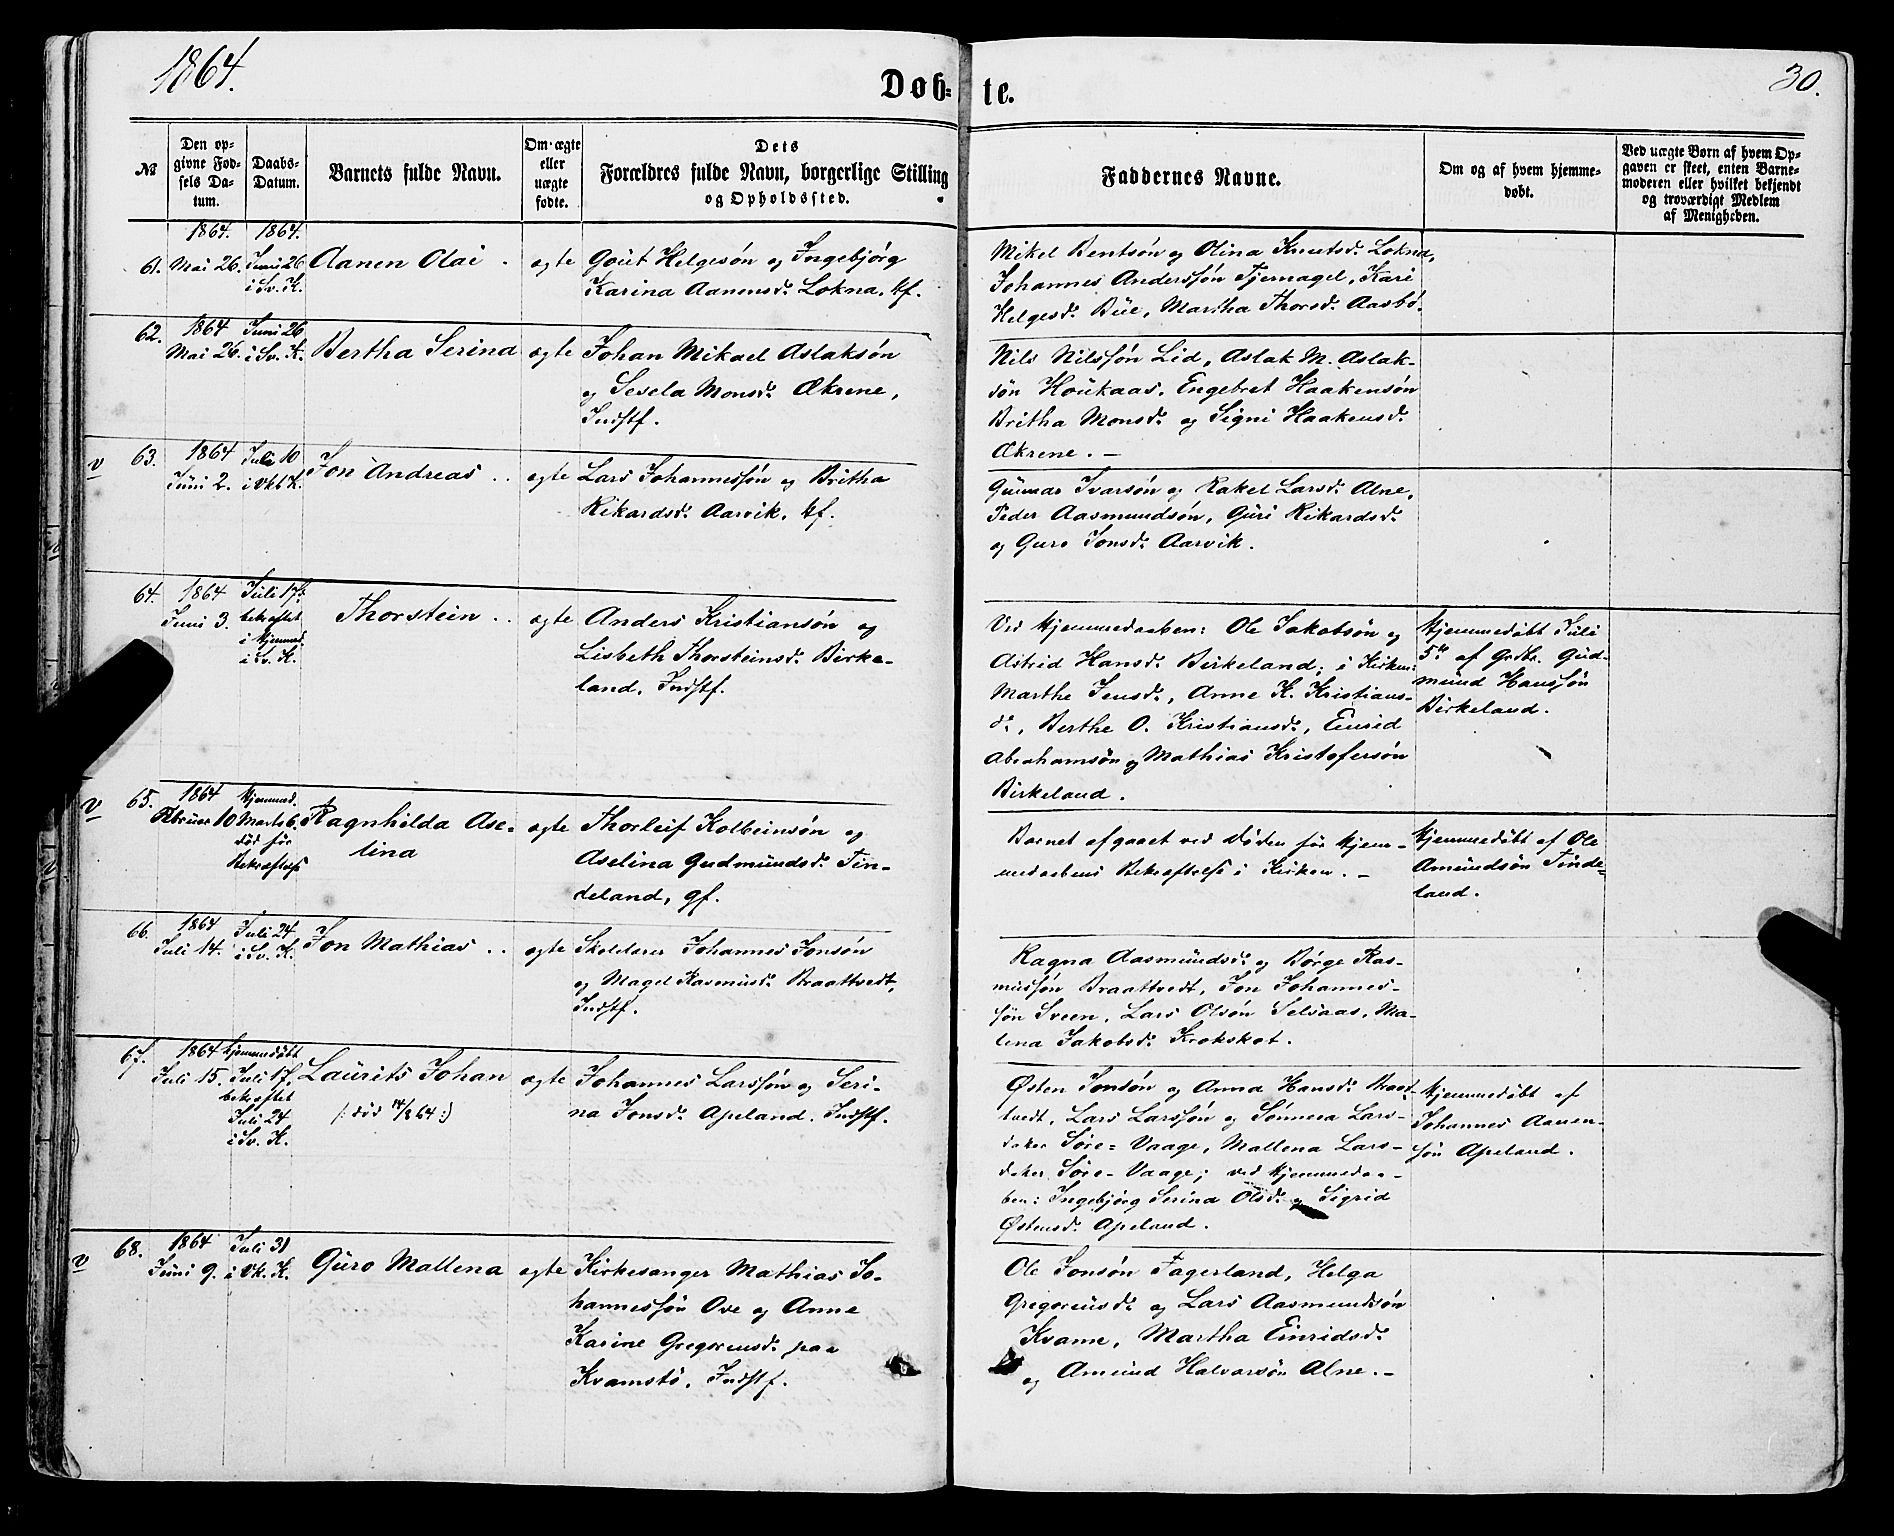 1864.
Døb-
te.
30.
№
Den op-
givne Fød-
sels Da-
tum.
Daabs-
Datum.
Barnets fulde Navn.
Om ægte
eller
uægte
fødte.
Dets
Forældres fulde Navn, borgerlige Stilling
og Opholdssted.
Faddernes Navne.
Om og af hvem hjemme-
døbt.
Ved uægte Børn af hvem Op-
gaven er skeet, enten Barne-
moderen eller hvilket bekjendt
og troværdigt Medlem
af Menigheden.
1864.
1864.
61.
Mai 26.
Juni 26
i Sv. K.
Aanen Olai
ægte
Gout Helgesøn og Ingebjørg
Karina Aanensd. Lokna. kf.
Mikel Bentsøn og Olina Knutsd. Lokna,
Johannes Anderssøn Tjernagel, Kari
Helgesd. Büe, Martha Thorsd. Aasbø.
62.
1864
Mai 26.
Juni 26
i Sv. K.
Bertha Serina
ægte
Johan Mikael Aslaksøn
og Sesela Monsd. Økrene,
Indstf.
Nils Nilssøn Lid, Aslak M. Aslak-
søn Houkaas, Engebret Haakensøn
Britha Monsd. og Signi Haakensd.
Økrene. -
v
63.
1864
Juni 2.
Juli 10
i Vkb K.
Jon Andreas . .
ægte
Lars Johannessøn og Britha
Rikardsd. Aarvik. kf.
Gunnar Ivarsøn og Rakel Larsd. Alne,
Peder Aasmundsøn, Guri Rikardsd.
og Guro Jonsd. Aarvik.
64.
1864
Juni 3.
Juli 17
bekræftet
i Hjemmed.
i Sv. K.
Thorstein . .
ægte
Anders Kristiansøn og
Lisbeth Thorsteinsd. Birke-
land, Indstf.
Ved Hjemmedaaben: Ole Jakobsøn og
Astrid Hansd. Birkeland; i Kirken:
Marthe Jensd., Anne K. Kristians-
d., Berthe O. Kristiansd., Einrid
Abrahamsøn og Mathias Kristofersøn
Birkeland.
Hjemmedøbt Juli
5te af Grdbr. Gud-
mund Hanssøn
Birkeland.
v
65.
1864
Februar 10
Hjemmed.
Marts 6.
død før
Bekræftelse
Ragnhilda Ase-
lina
ægte
Thorleif Kolbeinsøn og
Aselina Gudmundsd. Tin-
deland, gf.
Barnet afgaaet ved Døden før Hjem-
medaabens Bekræftelse i Kirken. -
Hjemmedøbt af Ole
Amundsøn Tinde-
land.
66.
1864
Juli 14.
Juli 24
i Sv. K.
Jon Mathias . .
ægte
Skolelærer Johannes Jonsøn
og Magel Rasmusd. Braattvedt,
Indstf.
Ragna Aasmundsd. og Børge Ras-
mussøn Braattvedt, Jon Johannes-
søn Sveen, Lars Olsøn Selsaas, Ma-
lena Jakobsd. Krokskot.
67.
1864
Juli 15.
Hjemmedøbt
Juli 17,
bekræftet
Juli 24
i Sv. K.
Laurits Johan
(: død 14/8 64:)
ægte
Johannes Larssøn og Seri-
na Jonsd. Apeland. Indstf.
Østen Jonsøn og Anna Hansd. Braat-
tvedt, Lars Larssøn og Sønneva Lars-
datter Søre-Vaage, Mallena Lars-
datter Søre-Vaage; ved Hjemmedaa-
ben: Ingebjørg Serina Olsd. og Sigrid
Østensd. Apeland.
Hjemmedøbt af
Johannes Aanen-
søn Apeland.
v
68.
1864
Juni 9.
Juli 31
i Vk. K.
Guro Mallena
ægte
Kirkesanger Mathias Jo-
hannessøn Ove og Anne
Karine Gregoriusd. paa
Kvamstø. Indstf.
Ole Jonsøn Fagerland, Helga
Gregoriusd. og Lars Aasmundsøn
Kvame, Martha Einridsd.
og Amund Halvarsøn Alne. -